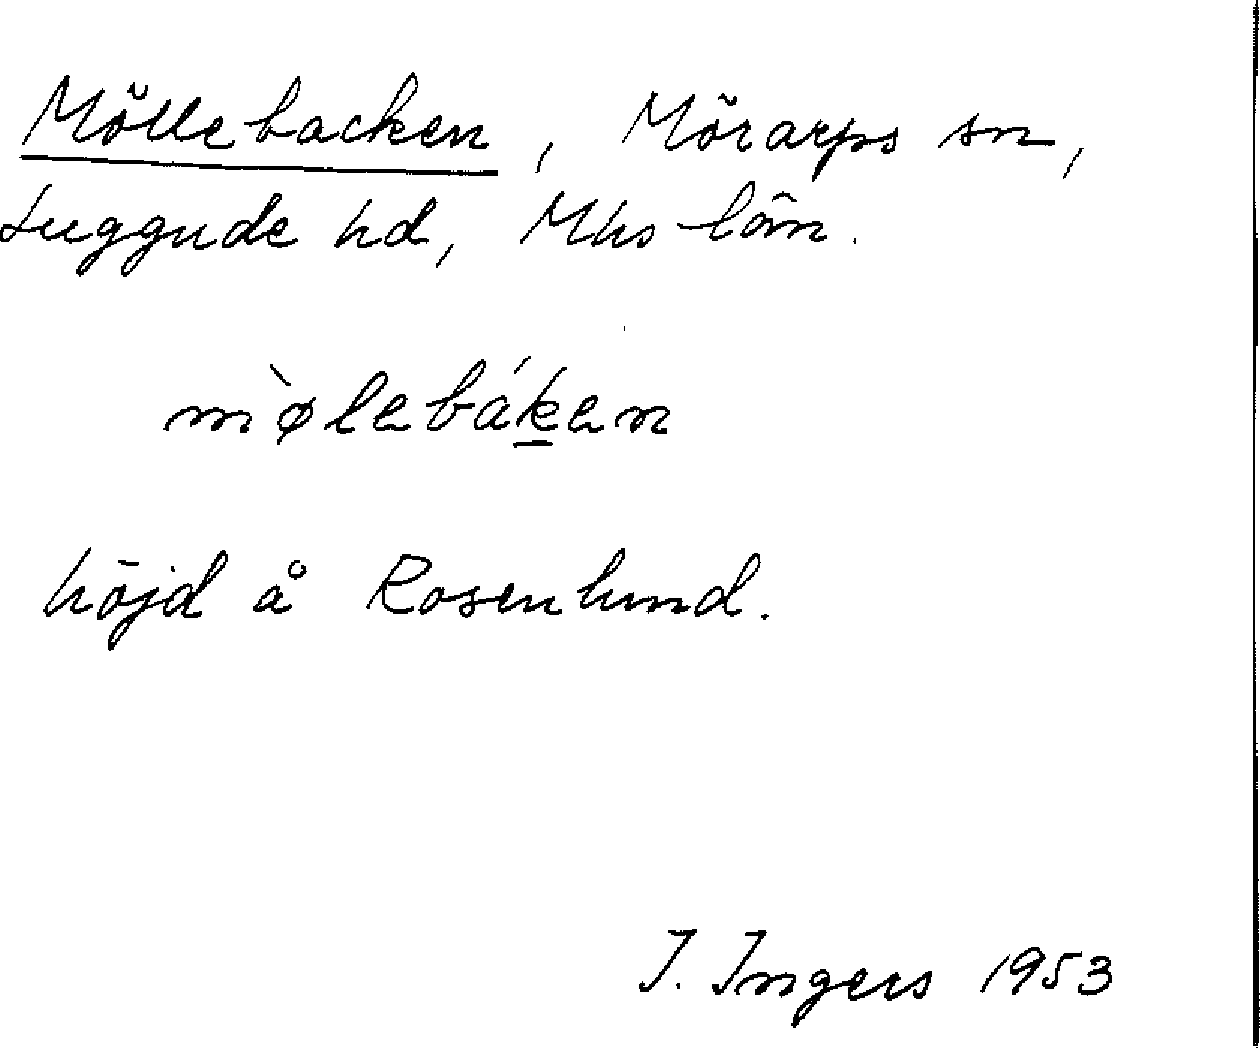 Möllebacken, Mörarps sn,
Luggude hd, Mhs län.
mø̀lebáḵen
höjd å Rosenlund.
I. Ingers 1953